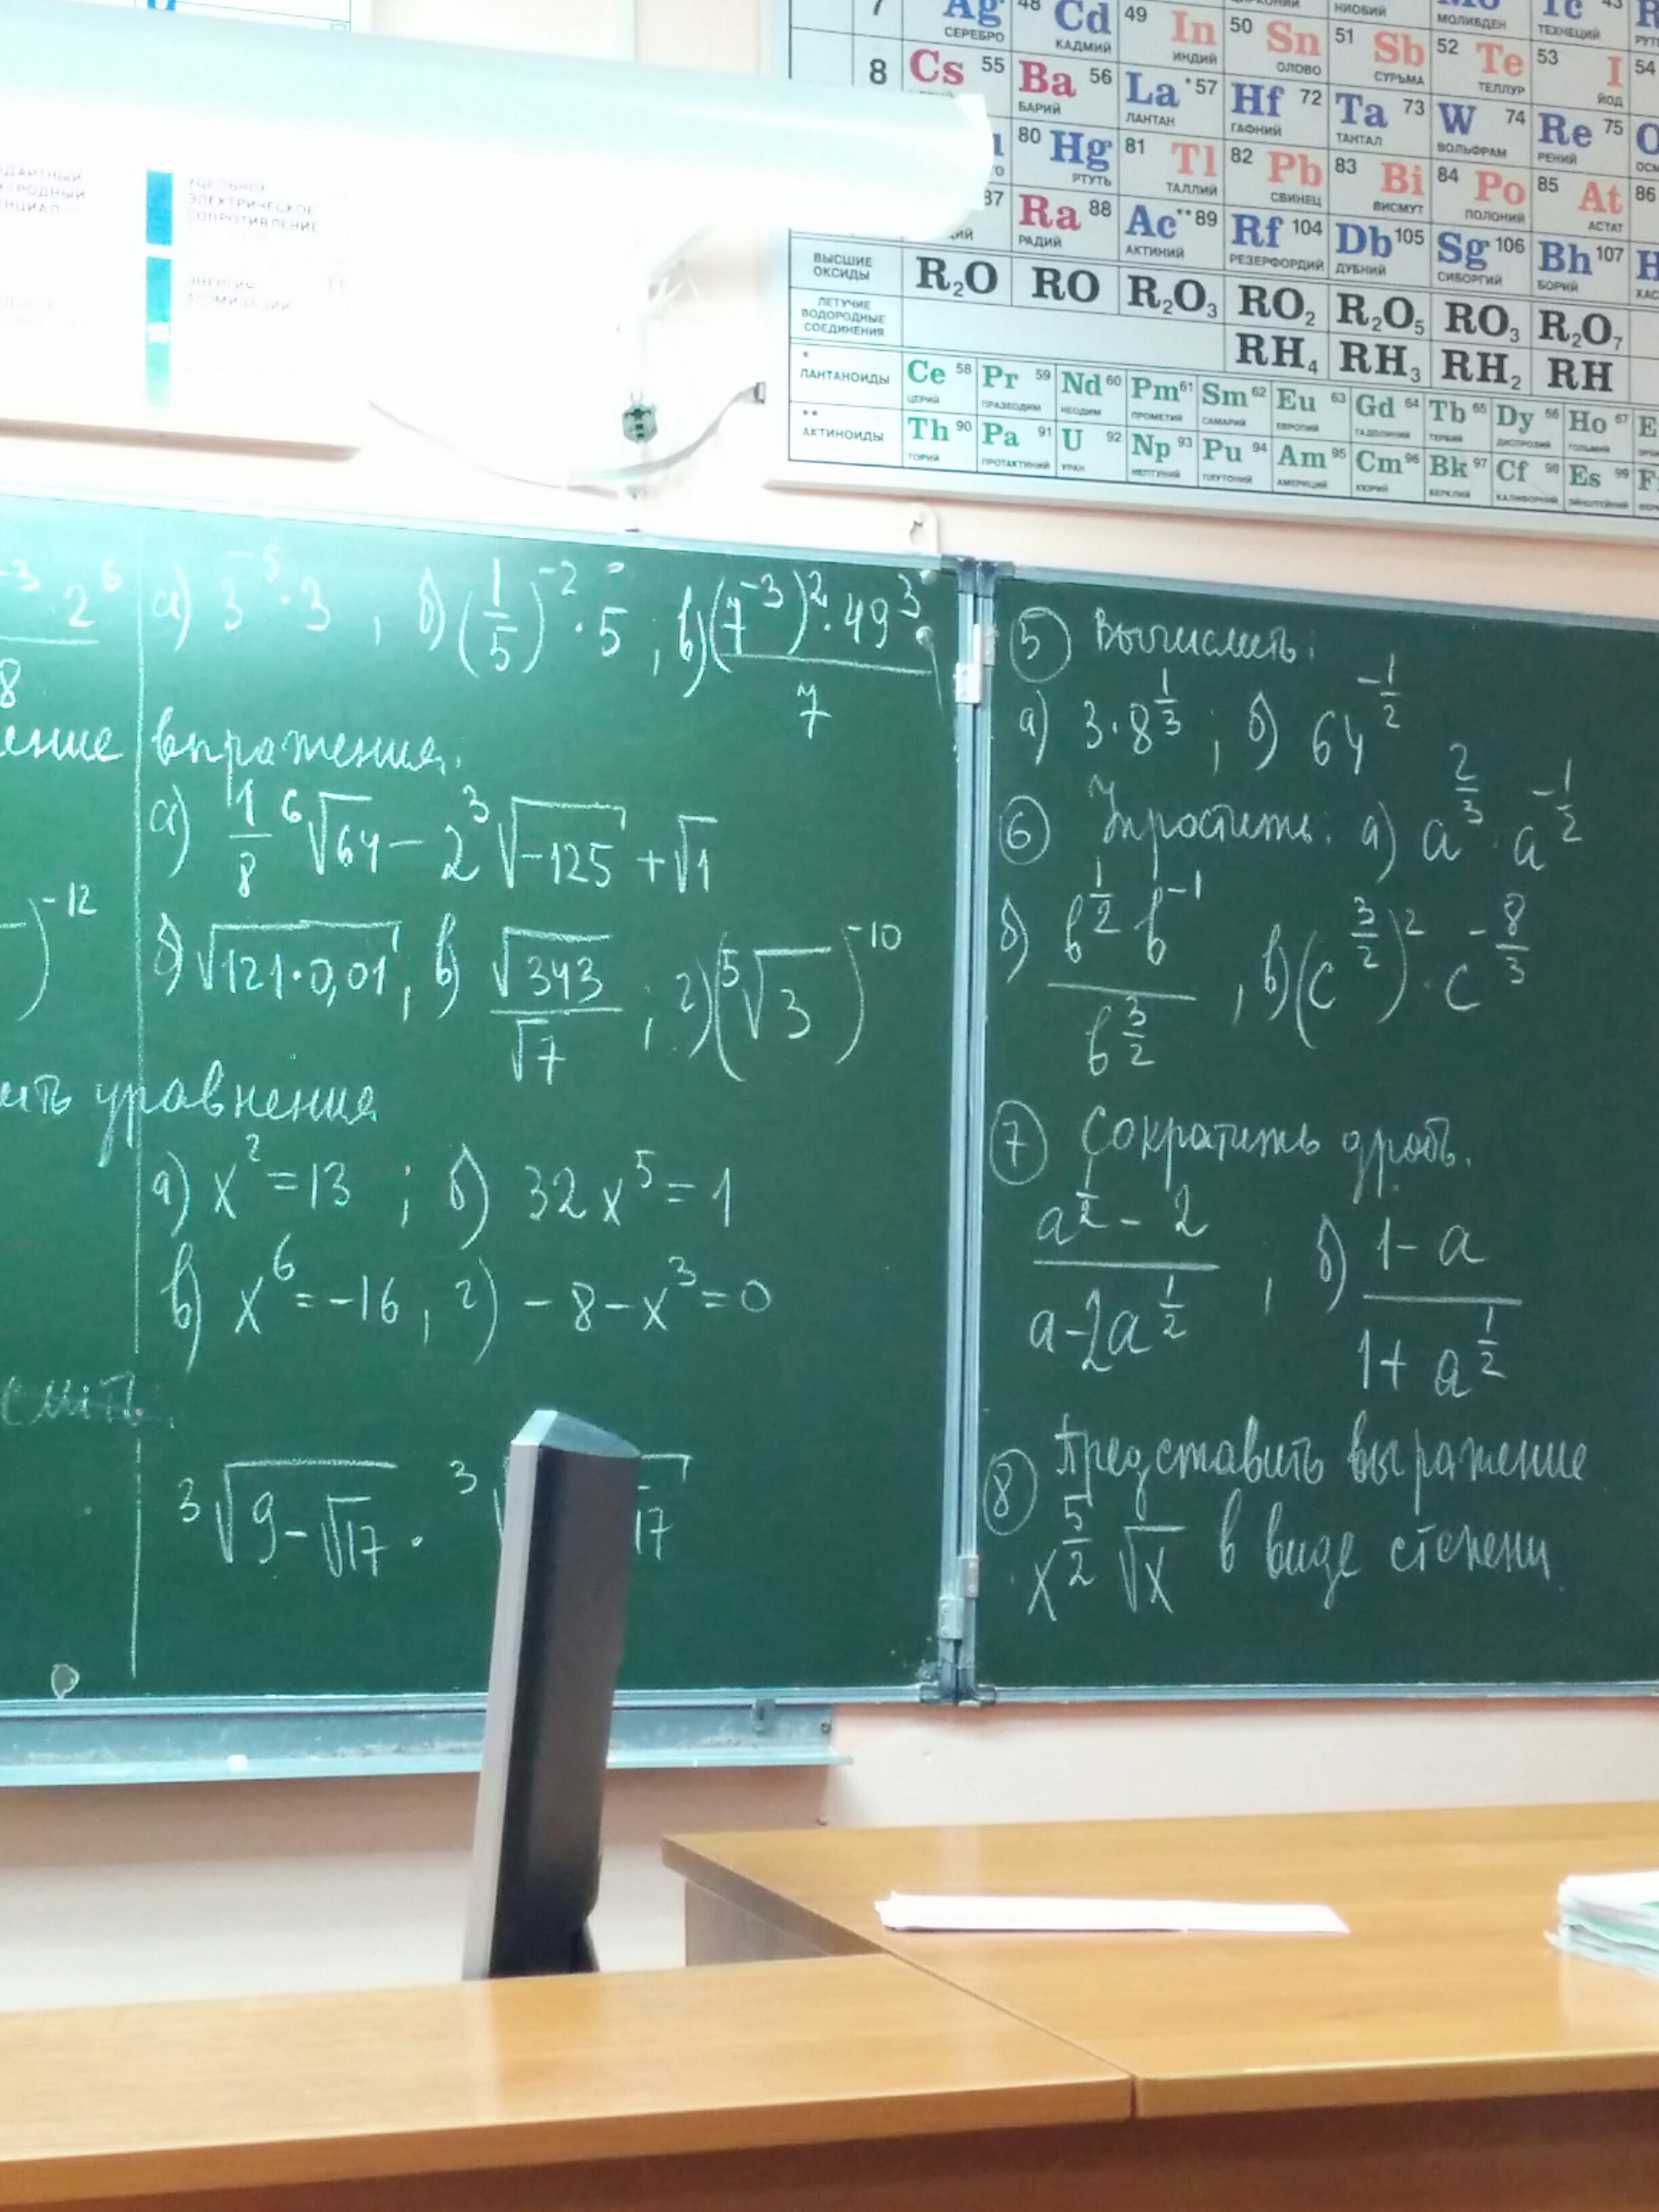 7 Ag 48 Cd 49 In 50 Sn 51 Sb 52 Te 53 I 54
СЕРЕБРО КАДМИЙ ИНДИЙ ОЛОВО СУРЬМА ТЕЛЛУР ЙОД
НИОБИЙ МОЛИБДЕН ТЕХНЕЦИЙ
8 Cs 55 Ba 56 La *57 Hf 72 Ta 73 W 74 Re 75
БАРИЙ ЛАНТАН ГАФНИЙ ТАНТАЛ ВОЛЬФРАМ РЕНИЙ
80 Hg 81 Tl 82 Pb 83 Bi 84 Po 85 At 86
РТУТЬ ТАЛЛИЙ СВИНЕЦ ВИСМУТ ПОЛОНИЙ АСТАТ
87 Ra 88 Ac **89 Rf 104 Db 105 Sg 106 Bh 107
РАДИЙ АКТИНИЙ РЕЗЕРФОРДИЙ ДУБНИЙ СИБОРГИЙ БОРИЙ
ВЫСШИЕ ОКСИДЫ R₂O RO R₂O₃ RO₂ R₂O₅ RO₃ R₂O₇
ЛЕТУЧИЕ ВОДОРОДНЫЕ СОЕДИНЕНИЯ RH₄ RH₃ RH₂ RH
* ЛАНТАНОИДЫ Ce 58 Pr 59 Nd 60 Pm 61 Sm 62 Eu 63 Gd 64 Tb 65 Dy 66 Ho 67
ЦЕРИЙ ПРАЗЕОДИМ НЕОДИМ ПРОМЕТИЙ САМАРИЙ ЕВРОПИЙ ГАДОЛИНИЙ ТЕРБИЙ ДИСПРОЗИЙ ГОЛЬМИЙ
** АКТИНОИДЫ Th 90 Pa 91 U 92 Np 93 Pu 94 Am 95 Cm 96 Bk 97 Cf 98 Es 99
ТОРИЙ ПРОТАКТИНИЙ УРАН НЕПТУНИЙ ПЛУТОНИЙ АМЕРИЦИЙ КЮРИЙ БЕРКЛИЙ КАЛИФОРНИЙ ЭЙНШТЕЙНИЙ
УДЕЛЬНОЕ
ЭЛЕКТРИЧЕСКОЕ
СОПРОТИВЛЕНИЕ
ЭНЕРГИЯ
АТОМИЗАЦИИ
-3 · 2^6 / 8
а) 3^-5 · 3 ; б) (1/5)^-2 · 5 ; в) (7^-3)^2 · 49^3 / 7
ение выражения.
а) 1/8 ⁶√64 − 2 ³√−125 + √1
)^-12
б) √121·0,01 , в) √343 / √7 ; г) (⁵√3)^-10
ить уравнения
а) x² = 13 ; б) 32x⁵ = 1
в) x⁶ = −16 , г) −8 − x³ = 0
³√9−√17 · ³√ 17
⑤ Вычислить:
а) 3·8^1/3 ; б) 64^-1/2
⑥ Упростить: а) a^2/3 · a^-1/2
б) b^1/2 b^-1 / b^3/2 , в) (c^3/2)² · c^-8/3
⑦ Сократить дробь.
a^1/2 − 2 / a − 2a^1/2 , б) 1 − a / 1 + a^1/2
⑧ Представить выражение
x^5/2 √x в виде степени